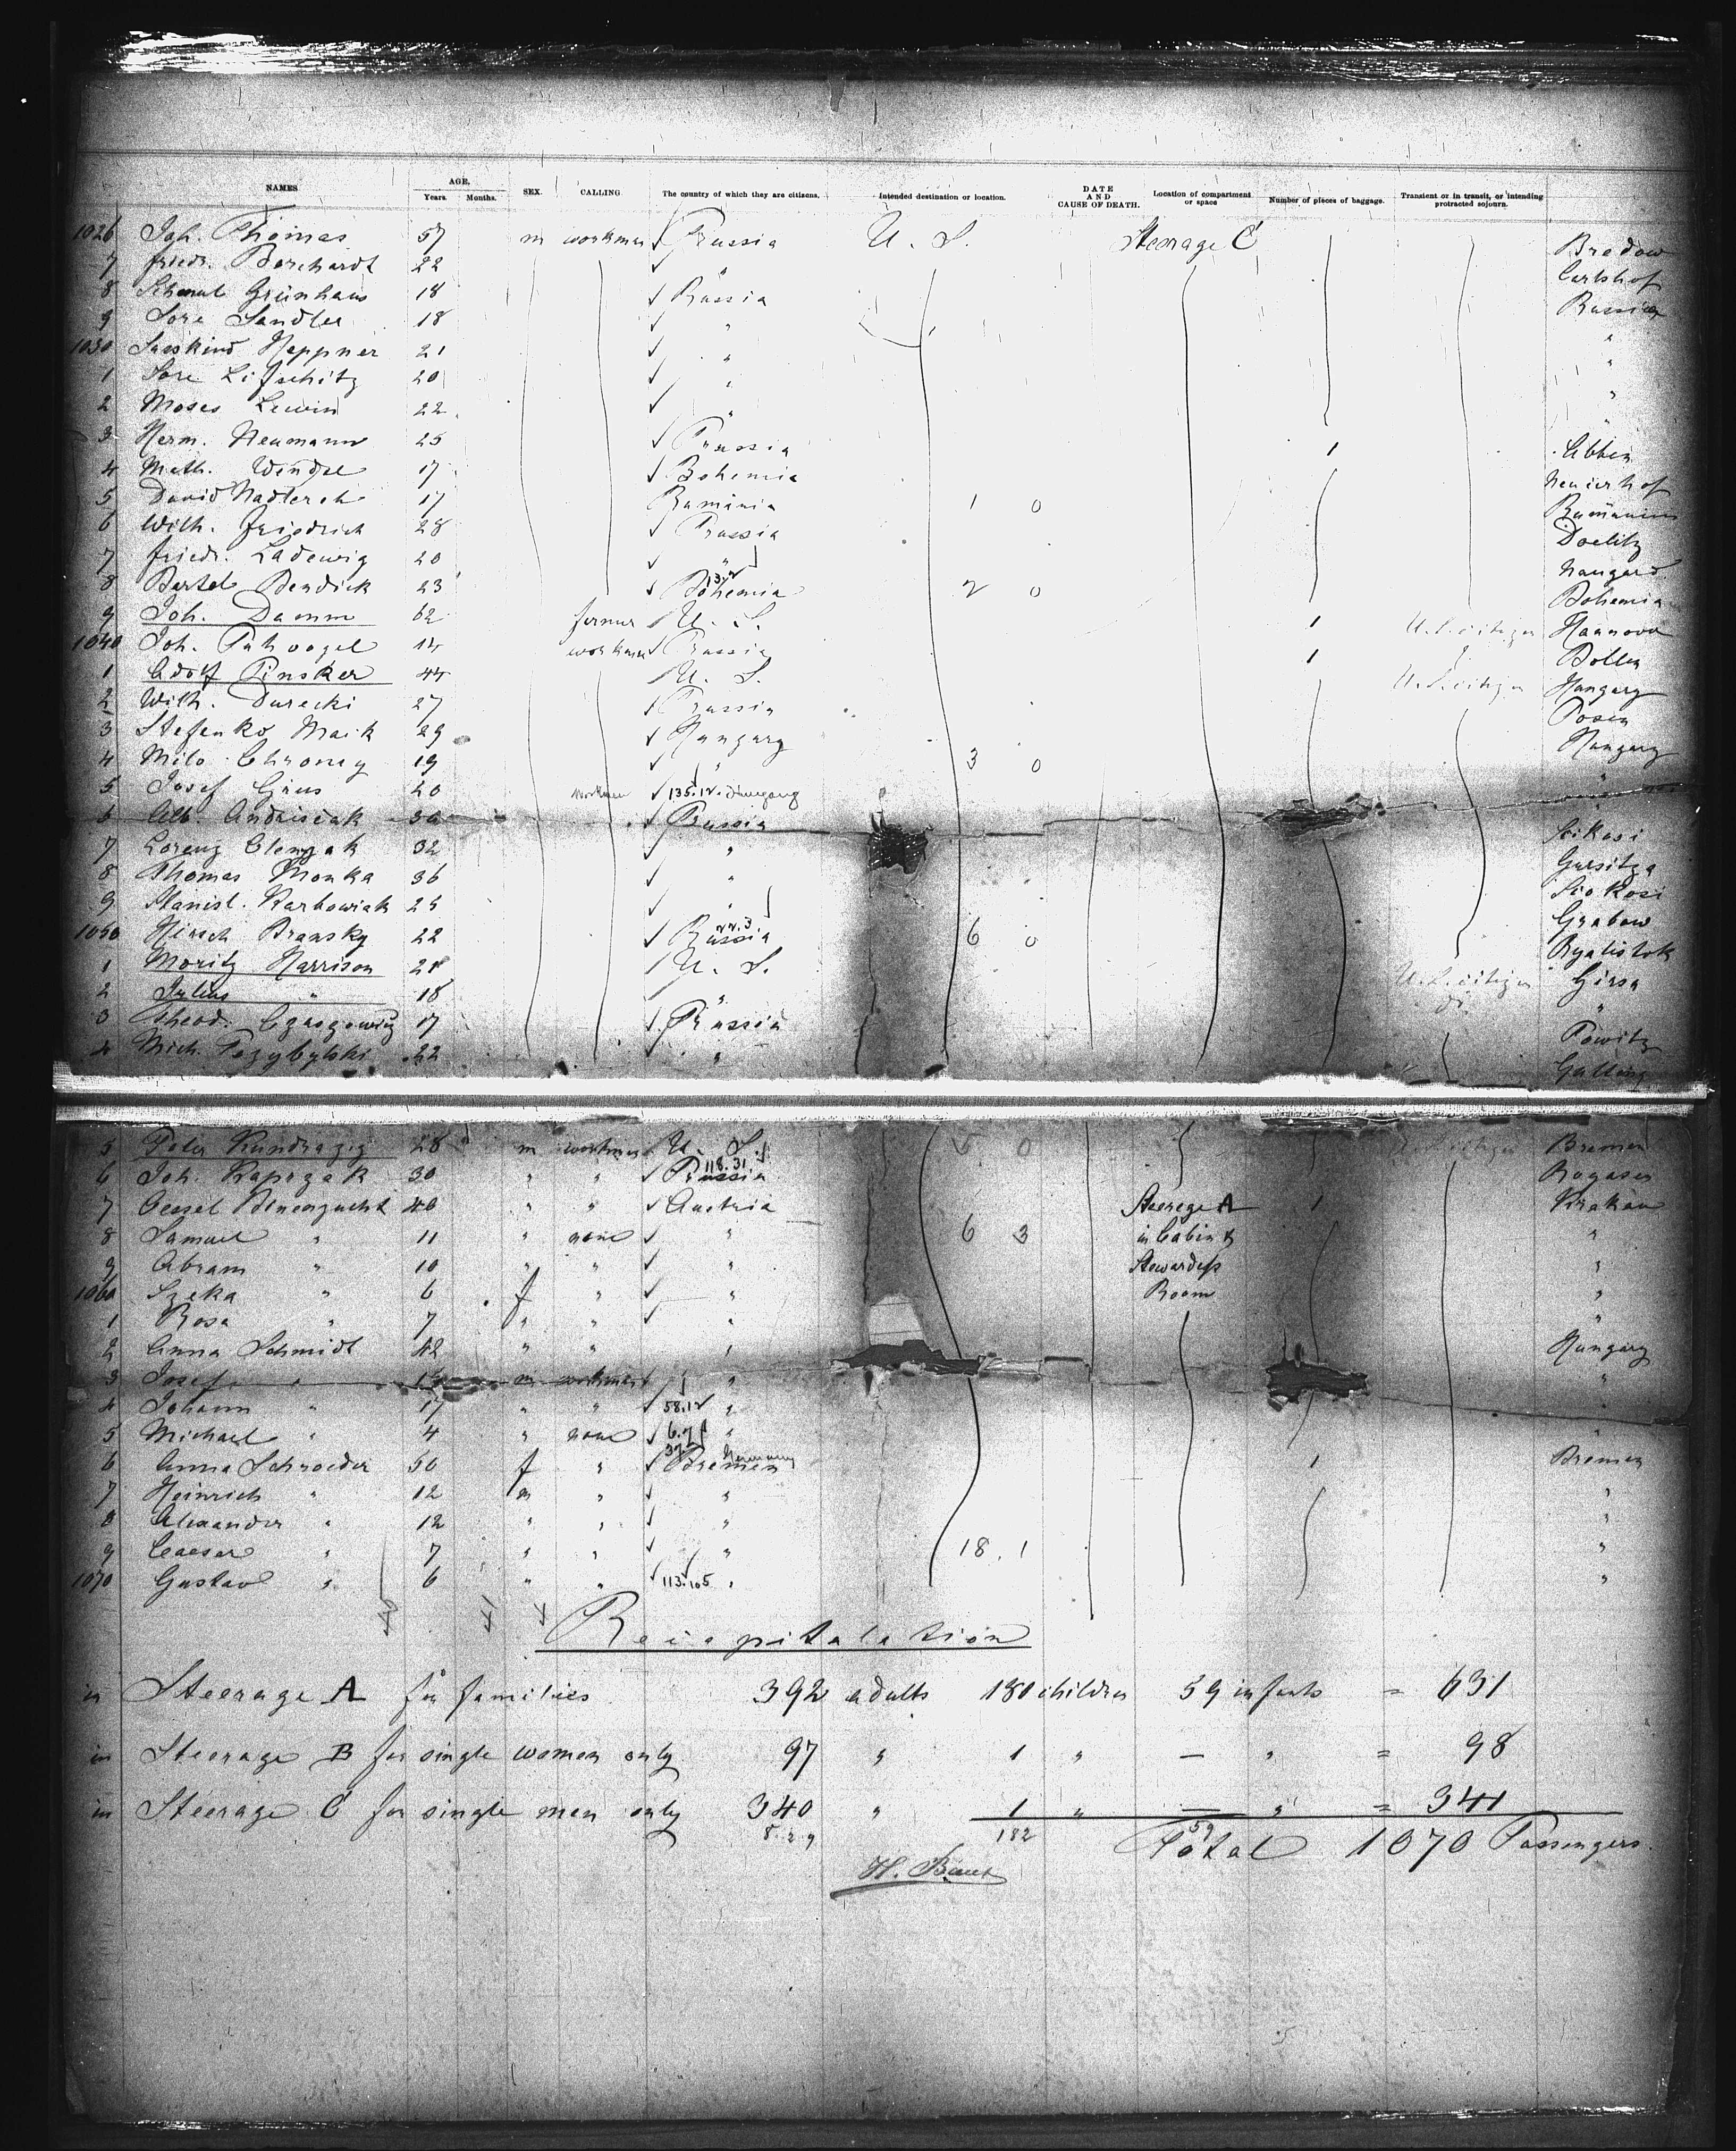 NAMES AGE. Years. Months. SEX. CALLING. The country of which they are citizens. Intended destination or location. DATE AND CAUSE OF DEATH. Location of compartment or space Number of pieces of baggage. Transient or in transit, or intending protracted sojourn.
1026 Joh. Thomas 57 m workman ✓ Prussia U. S. Steerage C Bredow
7 Friedr. Borchardt 22 ✓ " Carlshof
8 Grünhaus 18 ✓ Russia Russia
9 Sore Sandler 18 ✓ " "
1030 Heppner 21 ✓ " "
1 Sore Lifschitz 20 ✓ " "
2 Moses Lewin 22 ✓ " "
3 Herm. Neumann 25 ✓ Prussia 1
4 Math. 17 ✓ Bohemia
5 David 17 Rumänia 1 0 Rumänien
6 Wilh. Friedrich 28 ✓ Prussia Doelitz
7 Friedr. Ladewig 20 ✓ " Naugard
8 Bertel Bendick 23 ✓ 13.2 Bohemia 2 0 Bohemia
9 Joh. Damm 62 farmer U. S. 1 U.S. citizen Hannover
1040 Joh. 14 workman Prussia 1
1 Adolf Pinsker 44 U. S. U.S. citizen Hungary
2 Wilh. Durecki 27 ✓ Prussia Posen
3 Stefanko Maik 29 ✓ Hungary Hungary
4 Milo 19 ✓ " 3 0
5 Josef 20 workman ✓ 135.12. "
6 Alb. Andrisiak ✓ Prussia
7 Lorenz 32 ✓ "
8 Thomas Monka 36 ✓ "
9 Stanisl. Karbowiak 25 ✓ " Grabow
1050 Hirsch Bransky 22 ✓ 22.3 Russia 6 0 Byalistok
1 Moritz Harrison 21 U. S. U.S. citizen
2 Julius " 18 " "
3 Theod. 17 ✓ Prussia Powitz
4 Mich. 22 ✓ "
5 Peter 28 m workman U. S. 5 0 citizen Bremen
6 Joh. Kaprzak 30 " " ✓ 118.31 Prussia Rogasen
7 " " ✓ Austria Steerage A 1 Krakau
8 Samuel " 11 " none ✓ " 6 3 in Cabin &
9 Abram " 10 " " ✓ " Stewardess "
1060 Szeka " 6 f " ✓ " Room "
1 Rosa " 7 " " ✓ " "
2 Anna Schmidt 42 " " " Hungary
3 Josef " m workman ✓ " "
4 Johann " 17 " " ✓ 58.12 "
5 Michael " 4 " none ✓ 6.7 " "
6 Anna Schroeder f " ✓ Bremen Germany 1 Bremen
7 Heinrich " 12 m " ✓ " "
8 Alexander " 12 " " ✓ " "
9 Caesar " 7 " " ✓ " 18. 1 "
1070 Gustav " 6 " " ✓ 113.105 " "
Recapitulation
in Steerage A for families 392 adults 180 children 59 infants = 631
in Steerage B for single women only 97 " 1 " — " = 98
in Steerage C for single men only 340 " 1 " — " = 341
829 182 59 Total 1070 Passengers.